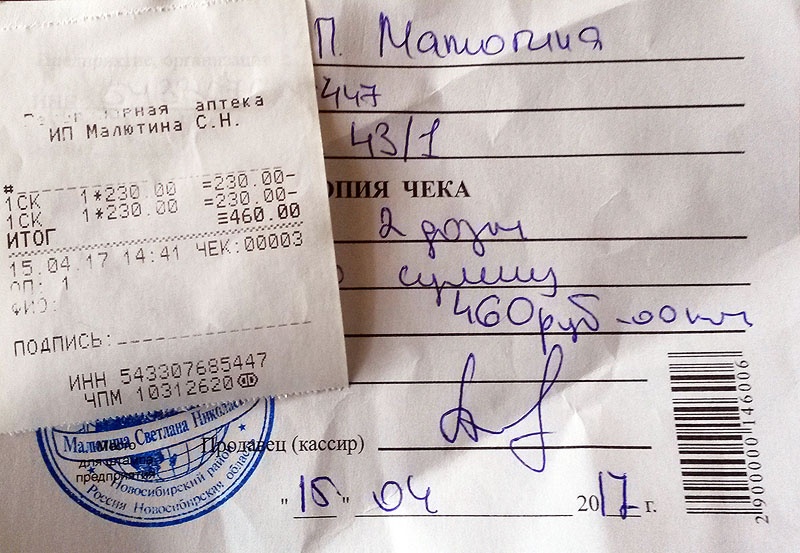 аптека
ИП Малютина С.Н.
#
1СК 1*230.00 =230.00-
1СК 1*230.00 =230.00-
ИТОГ ≡460.00
15.04.17 14:41 ЧЕК:00003
ОП: 1
ФИО:
ПОДПИСЬ:
ИНН 543307685447
ЧПМ 10312620
П. Малютина
447
43/1
ОПИЯ ЧЕКА
2 дозы
сумму
460руб-00коп
Продавец (кассир)
Малютина Светлана Николае
Место
для штампа
предприятия
Новосибирский район
Россия Новосибирская область
"15" 04 2017 г.
2900000146006